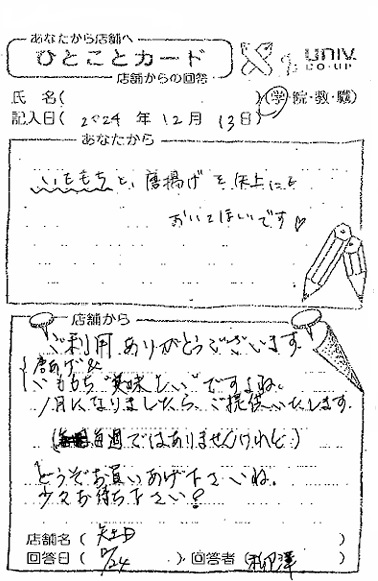 あなたから店舗へ
ひとことカード
店舗からの回答
univ.
CO-OP
氏名( )(学・院・教・職)
記入日( 2024 年 12 月 13 日)
あなたから
いももちと、唐揚げを 上にも
おいてほしいです♡
店舗から
ご利用ありがとうございます。
唐あげ &
いももち"美味しい"ですよね。
1月になりましたら、ご提供いたします。
(毎週ではありませんけれど)
どうぞお買いあげ下さいね。
少々お待ち下さい?
店舗名( )
回答日( /24 ) 回答者( )